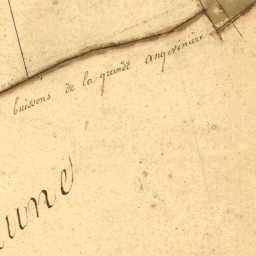 buissons de la grande angevinière